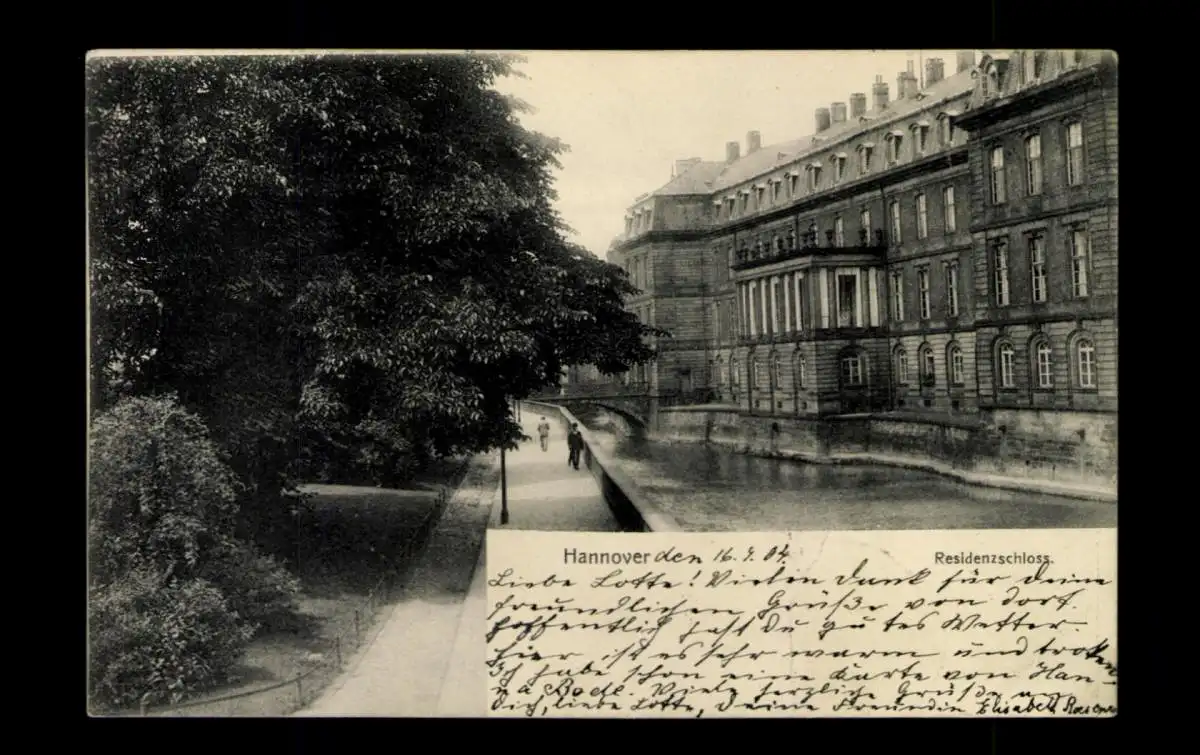 Hannover den 16.7.04. Residenzschloss.
Liebe Lotte! Vielen Dank für deine
freundlichen Grüße von dort.
Hoffentlich hast Du gutes Wetter.
Hier ist es sehr warm und trocken.
Ich habe schon eine Karte von Han-
na Bode. Viele herzliche Grüße an
Dich, liebe Lotte, Deine Freundin Elisabeth